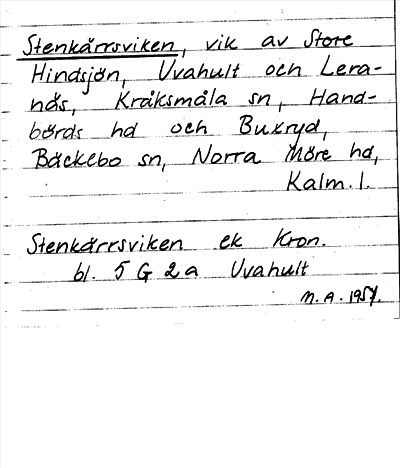 Stenkärrsviken, vik av Store
Hindsjön, Uvahult och Lera-
näs, Kråksmåla sn, Hand-
börds hd och Buxryd,
Bäckebo sn, Norra Möre hd,
Kalm. l.
Stenkärrsviken ek Kron.
bl. 5 G 2 a Uvahult
M. A. 1957.